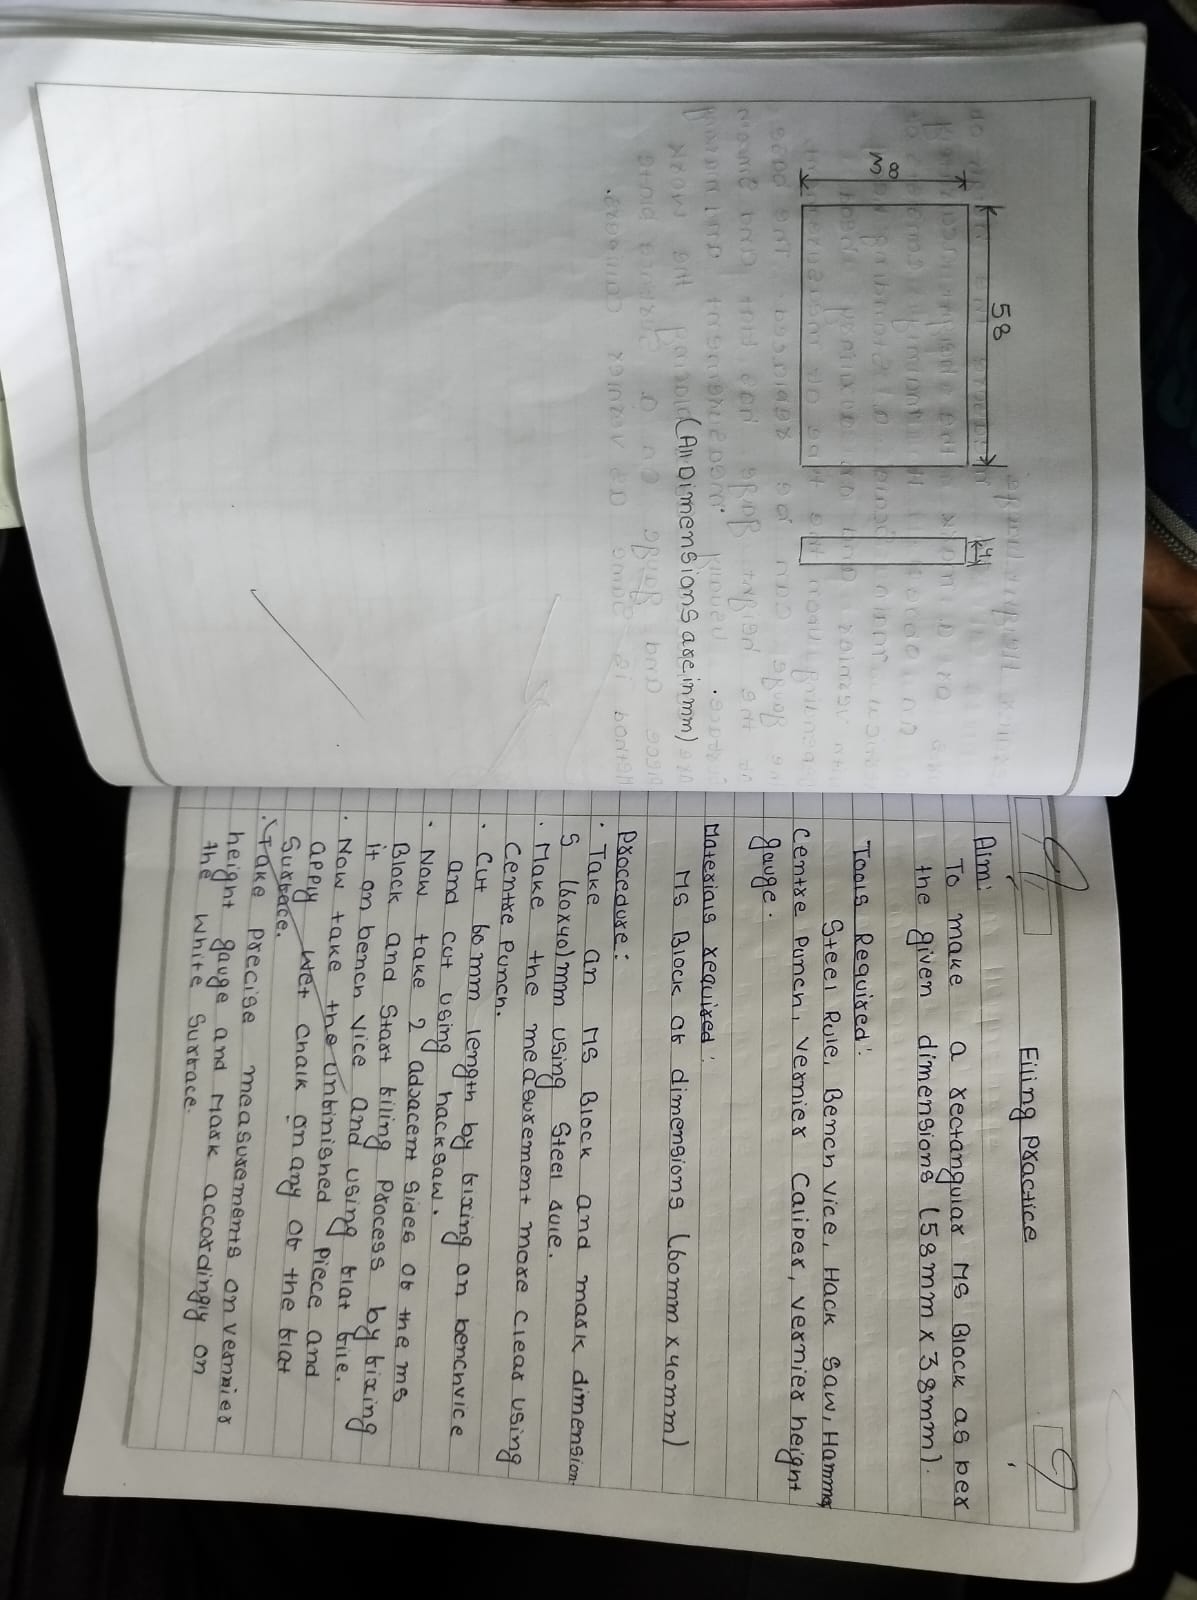 58
38
4
(All Dimensions are in mm)
Filing Practice
Aim:
To make a rectangular MS Block as per
the given dimensions (58mm x 38mm).
Tools Required:
Steel Rule, Bench vice, Hack Saw, Hammer,
Centre Punch, vernier Caliper, vernier height
gauge.
Materials required:
MS Block of dimensions (60mm x 40mm)
Procedure:
• Take an MS Block and mark dimension-
s (60x40)mm using Steel rule.
• Make the measurement more clear using
Centre Punch.
• Cut 60mm length by fixing on benchvice
and cut using hacksaw.
• Now take 2 advacent sides of the ms
Block and Start filing process by fixing
it on bench vice and using flat file.
• Now take the unfinished piece and
appy wet chalk on any of the flat
Surface.
• Take precise measurements on vernier
height gauge and Mark accordingly on
the white Surface.